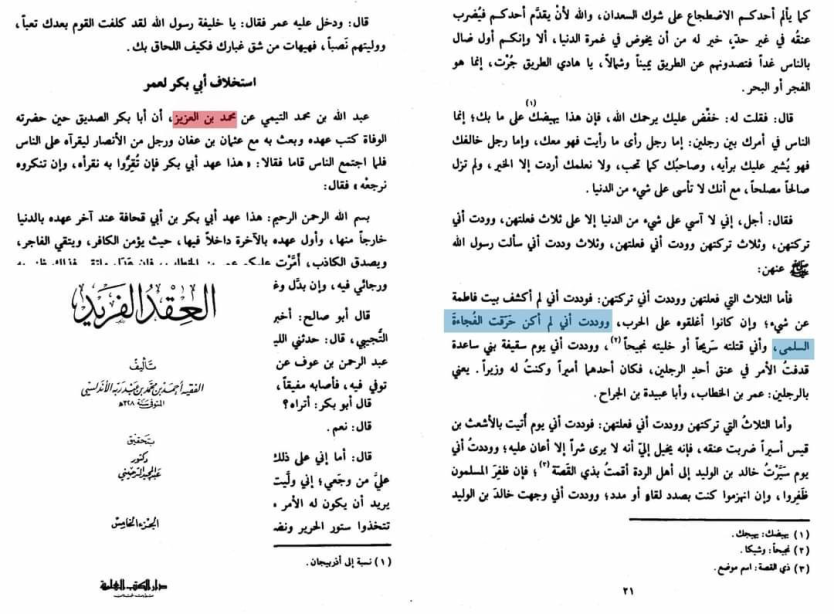 قال: ودخل عليه عمر فقال: يا خليفة رسول الله لقد كلفت القوم بعدك تعباً،
ووليتهم نَصباً، فهيهات من شق غبارك فكيف اللحاق بك.
استخلاف أبي بكر لعمر
عبد الله بن محمد التيمي عن محمد بن العزيز، أن أبا بكر الصديق حين حضرته
الوفاة كتب عهده وبعث به مع عثمان بن عفان ورجل من الأنصار ليقرآه على الناس
فلما اجتمع الناس قاما فقالا: «هذا عهد أبي بكر فإن تُقِرُّوا به نقرأه، وإن تنكروه
نرجعْه» فقال:
بسم الله الرحمن الرحيم: هذا عهد أبي بكر بن أبي قحافة عند آخر عهده بالدنيا
خارجاً منها، وأول عهده بالآخرة داخلاً فيها، حيث يؤمن الكافر، ويتقي الفاجر،
ويصدق الكاذب، أمَّرت عليكم عمر بن الخطاب، فإن عَدَل واتقى فذلك ظني به
ورجائي فيه، وإن بدَّل وغ
قال أبو صالح: أخبر
التُّجيبي، قال: حدثني اللي
عبد الرحمن بن عوف عن
توفي فيه، فأصابه مفيقاً،
قال أبو بكر: أتراه؟
قال: نعم.
قال: أما إني على ذلك
عليَّ من وجَعي؛ إني ولَّيت
يريد أن يكون له الأمر
تتخذوا ستور الحرير ونض
(١) نسبة إلى أذربيجان.
العقد الفريد
تأليف
الفقيه أحمد بن محمد بن عبد ربه الأندلسي
المتوفى سنة ٣٢٨هـ
بتحقيق
دكتور
عبد المجيد الترحيني
الجزء الخامس
دار الكتب العلمية
كما يألم أحدكم الاضطجاع على شوك السعدان، والله لأنْ يقدَّم أحدكم فيُضرب
عنقُه في غير حدّ، خير له من أن يخوض في غمرة الدنيا، ألا وإنكم أول ضال
بالناس غداً فتصدونهم عن الطريق يميناً وشمالاً، يا هادي الطريق جُرْت، إنما هو
الفجر أو البحر.
قال: فقلت له: خفِّض عليك يرحمك الله، فإن هذا يهيضك(١) على ما بك؛ إنما
الناس في أمرك بين رجلين: إما رجل رأى ما رأيت فهو معك، وإما رجل خالفك
فهو يُشير عليك برأيه، وصاحبُك كما تحب، ولا نعلمك أردت إلا الخير، ولم تزل
صالحاً مصلحاً، مع أنك لا تأسى على شيء من الدنيا.
فقال: أجل، إني لا آسي على شيء من الدنيا إلا على ثلاث فعلتهن، وودت أني
تركتهن، وثلاث تركتهن وودت أني فعلتهن، وثلاث وددت أني سألت رسول الله
ﷺ عنهن:
فأما الثلاث التي فعلتهن ووددت أني تركتهن: فوددت أني لم أكشف بيت فاطمة
عن شيء؛ وإن كانوا أغلقوه على الحرب، ووددت أني لم أكن حَرَقت الفُجاءةَ
السلمى، وأني قتلته سَريحاً أو خليته نجيحاً(٢)، ووددت أني يوم سقيفة بني ساعدة
قدفتُ الأمر في عنق أحدِ الرجلين، فكان أحدهما أميراً وكنتُ له وزيراً. يعني
بالرجلين: عمر بن الخطاب، وأبا عبيدة بن الجراح.
وأما الثلاثُ التي تركتهن ووددت أني فعلتهن: فوددت أني يوم أُتيت بالأشعث بن
قيس أسيراً ضربت عنقه، فإنه يخيل إليّ أنه لا يرى شراً إلا أعان عليه؛ ووددتُ أني
يوم سَيَّرْتُ خالد بن الوليد إلى أهل الردة أقمتُ بذي القَصّة(٣)؛ فإن ظفِرَ المسلمون
ظَفِروا، وإن انهزموا كنت بصدد لقاءٍ أو مدد؛ ووددت أني وجهت خالدَ بن الوليد
(١) يهيضك: يهيجك.
(٢) نجيحاً: وشيكا.
(٣) ذي القصة: اسم موضع.
٢١